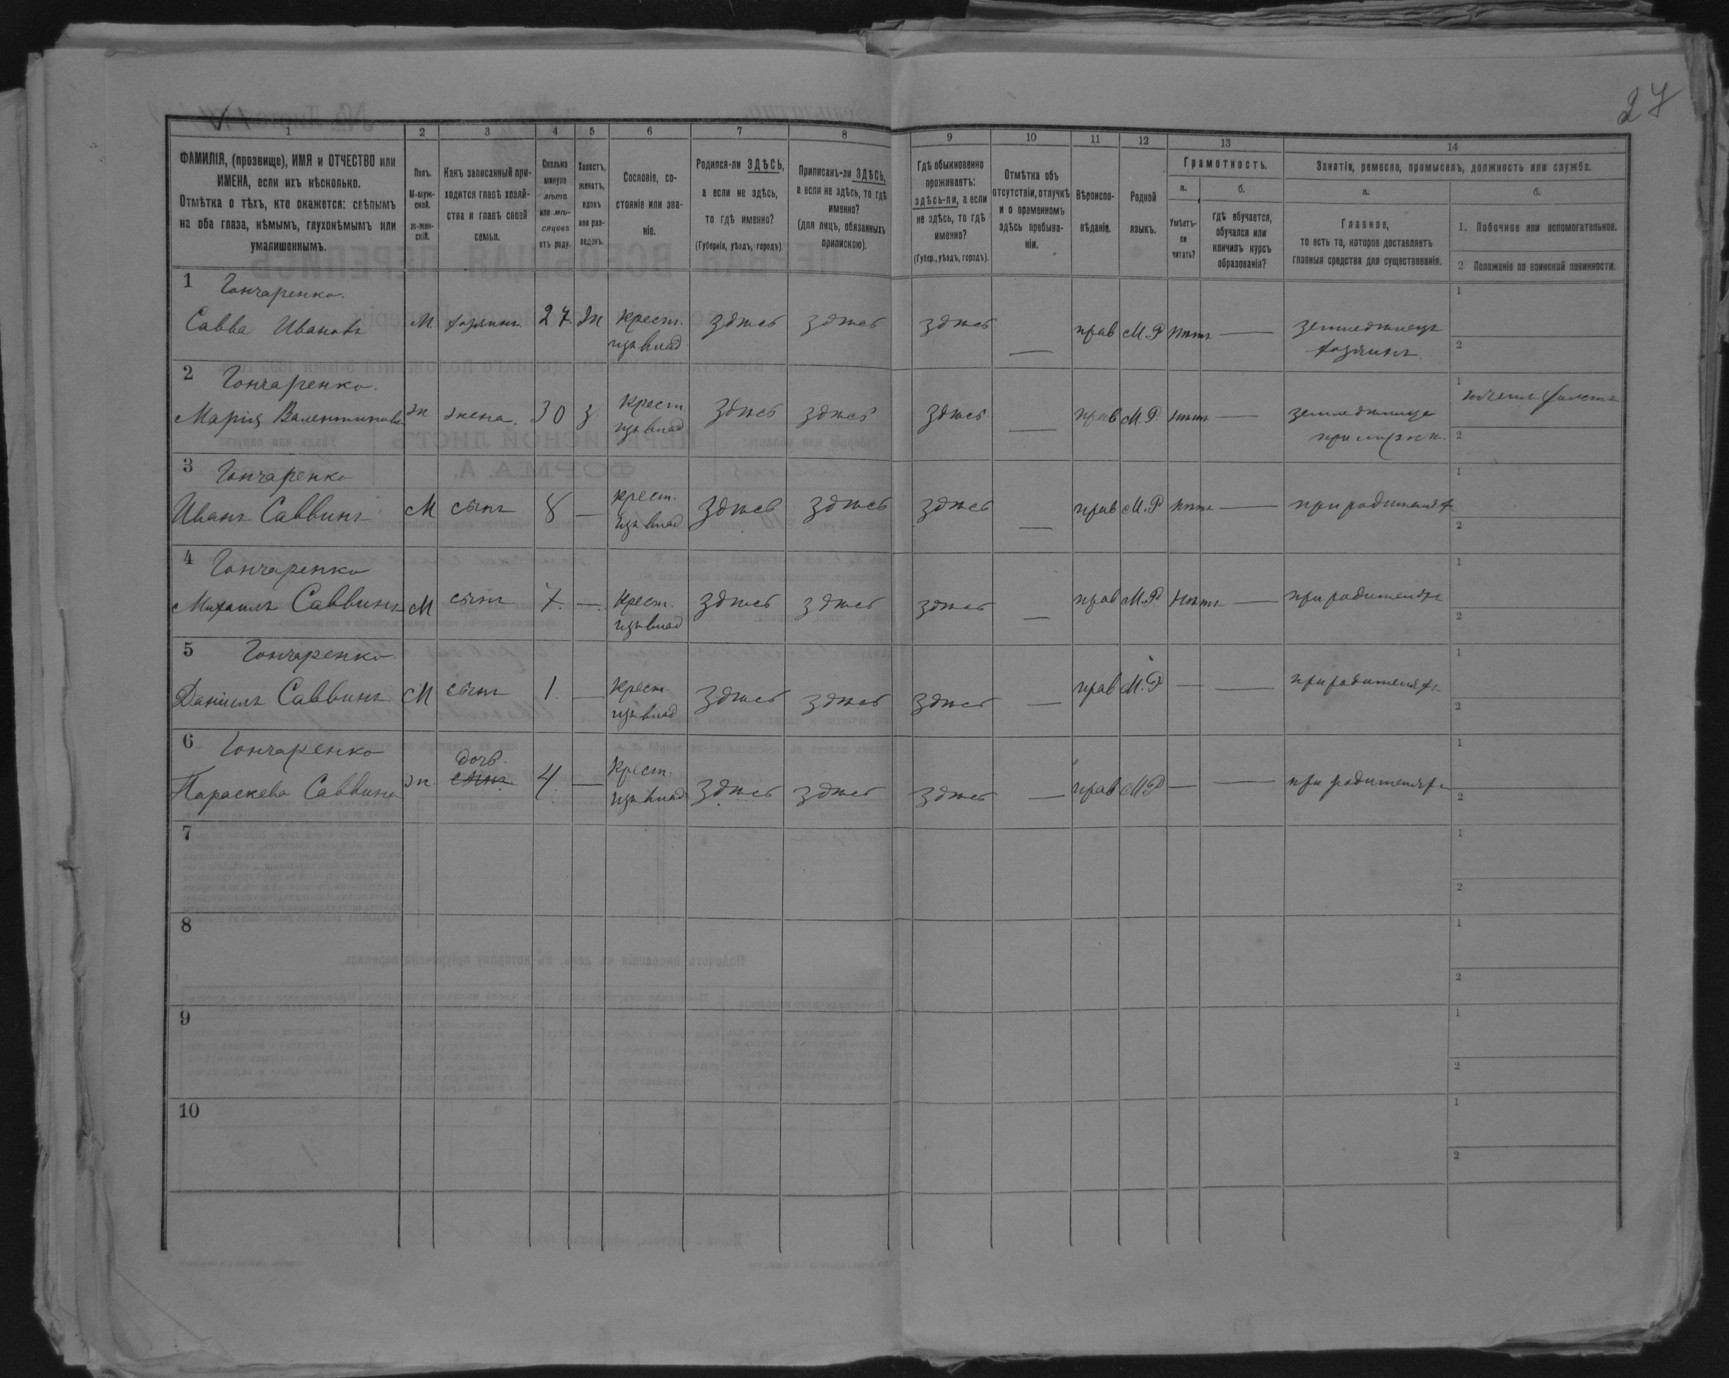 27
1
2
3
4
5
6
7
8
9
10
11
12
13
14
ФАМИЛІЯ, (прозвище), ИМЯ и ОТЧЕСТВО или
ИМЕНА, если ихъ нѣсколько.
Отмѣтка о тѣхъ, кто окажется: слѣпымъ
на оба глаза, нѣмымъ, глухонѣмымъ или
умалишеннымъ.
Полъ.
М-муж-
ской.
ж-жен-
скій.
Какъ записанный при-
ходится главѣ хозяй-
ства и главѣ своей
семьи.
Сколько
минуло
лѣтъ
или мѣ-
сяцевъ
отъ роду.
Холостъ,
женатъ,
вдовъ
или раз-
веденъ.
Сословіе, со-
стояніе или зва-
ніе.
Родился-ли ЗДѢСЬ,
а если не здѣсь,
то гдѣ именно?
(Губернія, уѣздъ, городъ).
Приписанъ-ли ЗДѢСЬ,
а если не здѣсь, то гдѣ
именно?
(для лицъ, обязанныхъ
припискою).
Гдѣ обыкновенно
проживаетъ:
здѣсь-ли, а если
не здѣсь, то гдѣ
именно?
(Губер., уѣздъ, городъ).
Отмѣтка объ
отсутствіи, отлучкѣ
и о временномъ
здѣсь пребыва-
ніи.
Вѣроиспо-
вѣданіе.
Родной
языкъ.
Грамотность.
а.
Умѣетъ-
ли
читать?
б.
гдѣ обучается,
обучался или
кончилъ курсъ
образованія?
Занятіе, ремесло, промыселъ, должность или служба.
а.
Главное,
то есть то, которое доставляетъ
главныя средства для существованія.
б.
1. Побочное или вспомогательное.
2 Положеніе по воинской повинности.
1 Гончаренко.
Савва Ивановъ М хозяинъ 27 Ж Крест. здѣсь здѣсь здѣсь — прав М.Р нѣтъ — земледѣлецъ 1
изъ влад хозяинъ. 2
2 Гончаренко.
Марія Валентинова ж жена. 30 з. Крест. здѣсь здѣсь здѣсь — прав М.Р. нѣтъ — земледѣлие 1
изъ влад при 2
3 Гончаренко
Иванъ Саввинъ М сынъ 8 — Крест. здѣсь здѣсь здѣсь — прав М.Р нѣтъ — при родителях 1
изъ влад 2
4 Гончаренко
Михаилъ Саввинъ М сынъ 7. — Крест. здѣсь здѣсь здѣсь — прав М.Р нѣтъ — при родителях 1
изъ влад 2
5 Гончаренко
Даніилъ Саввинъ М сынъ 1. — Крест. здѣсь здѣсь здѣсь — прав М.Р — — при родителях 1
изъ влад 2
6 Гончаренко дочь.
Параскева Саввина ж сынъ 4. — Крест. здѣсь здѣсь здѣсь — прав М.Р — — при родителях 1
изъ влад 2
7 1
2
8 1
2
9 1
2
10 1
2